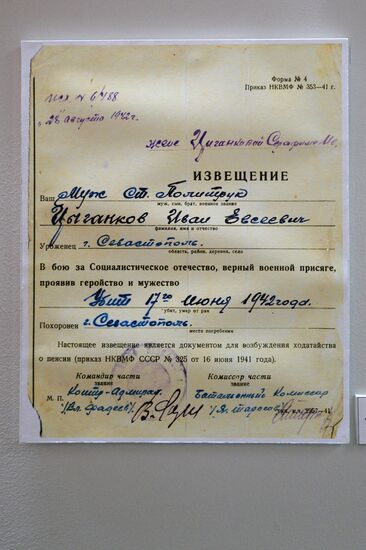 Форма № 4
Приказ НКВМФ № 353—41 г.
исх № 6/488
„28" августа 1942г.
жене Цыганковой Серафиме
ИЗВЕЩЕНИЕ
Ваш Муж Ст. Политрук
муж, сын, брат, военное звание
Цыганков Иван Евсеевич
фамилия, имя и отчество
Уроженец г. Севастополь.
область, район, деревня, село
В бою за Социалистическое отечество, верный военной присяге,
проявив геройство и мужество
Убит 17го июня 1942 года.
убит, умер от ран
Похоронен г. Севастополь.
место погребения
Настоящее извещение является документом для возбуждения ходатайства
о пенсии (приказ НКВМФ СССР № 325 от 16 июня 1941 года).
Командир части Комиссар части
звание звание
Контр-Адмирал Батальонный Комиссар
М. П. (Вл. Фадеев) (Я. Тарасов)